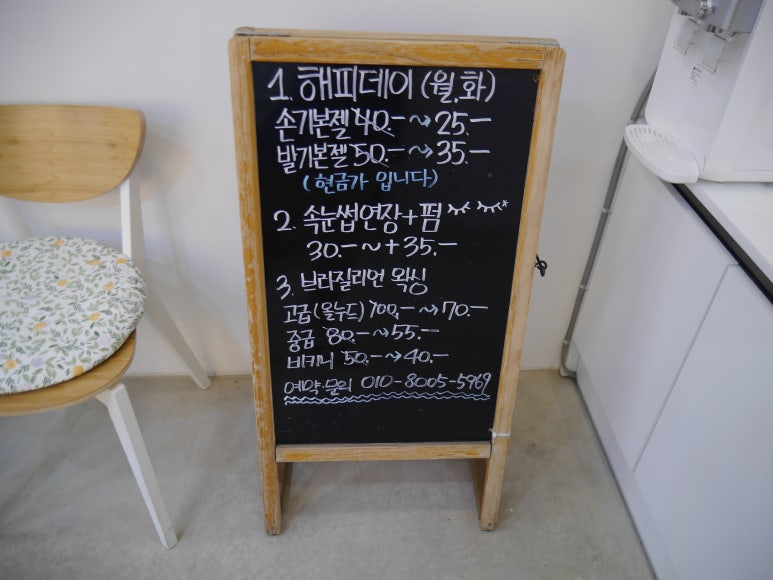 1. 해피데이 (월.화)
손기본젤 40.- → 25.-
발기본젤 50.- → 35.-
(현금가 입니다)
2. 속눈썹연장+펌
30.- ~ + 35.-
3. 브라질리언 왁싱
고급(올누드) 100.- → 70.-
중급 80.- → 55.-
비키니 50.- → 40.-
예약문의 010-8005-5969